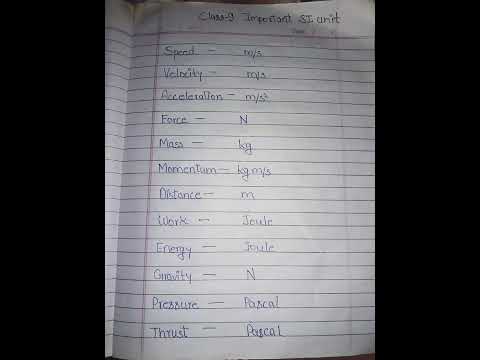 Class-9 Important SI unit
Speed — m/s
Velocity — m/s
Acceleration — m/s²
Force — N
Mass — kg
Momentum — kg m/s
Distance — m
Work — Joule
Energy — Joule
Gravity — N
Pressure — Pascal
Thrust — Pascal